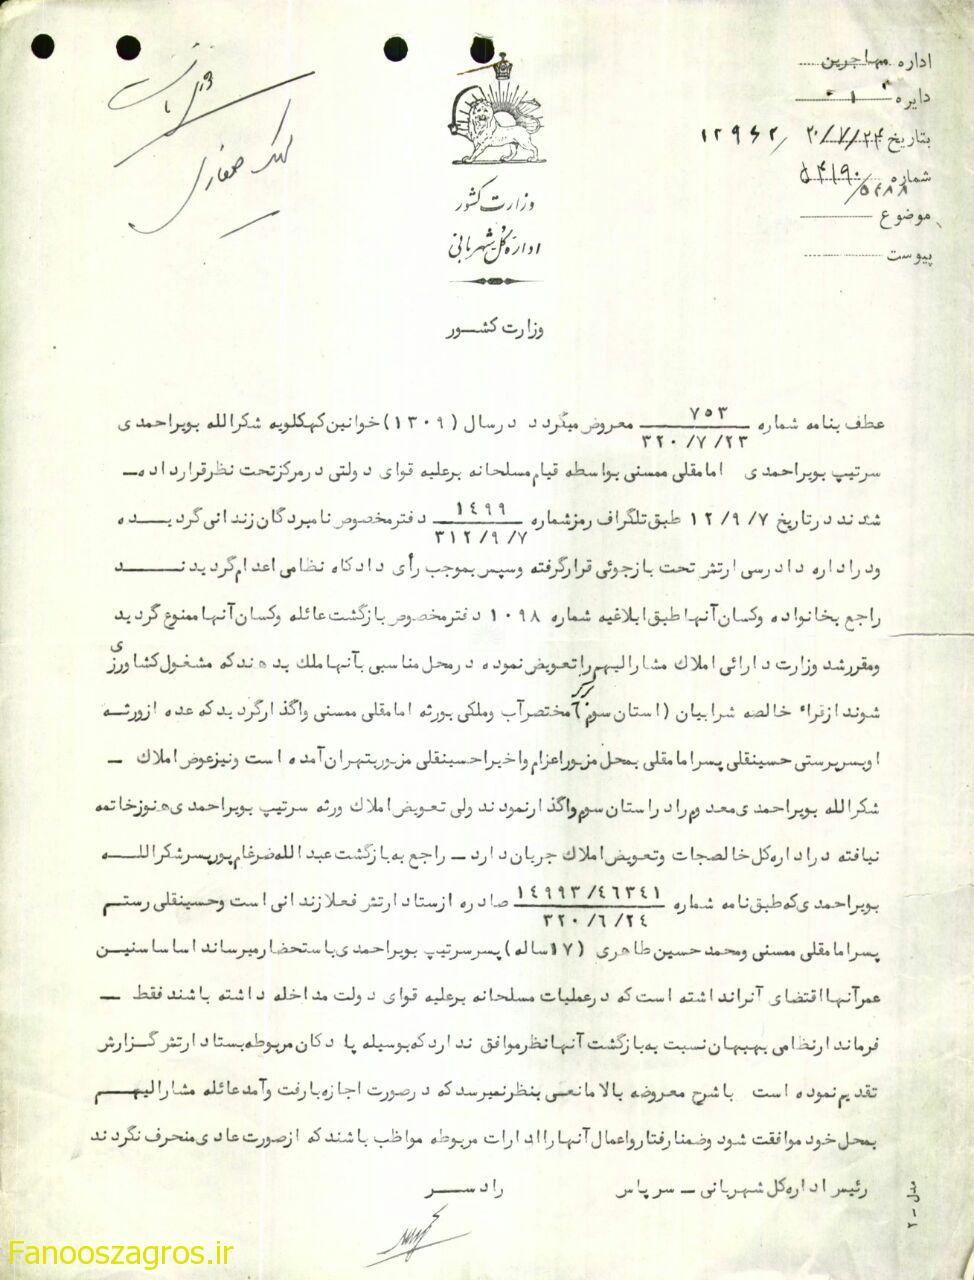 اداره مهاجرین
دایره ۱
بتاریخ ۲۰/۷/۲۴
شماره ۵۴۸۸
موضوع
پیوست
وزارت کشور
اداره کل شهربانی
وزارت کشور
عطف بنامه شماره ۷۵۳ / ۳۲۰/۷/۲۳ معروض میگردد در سال (۱۳۰۹) خوانین کهکلویه شکرالله بویراحمدی
سرتیپ بویراحمدی امامقلی ممسنی بواسطه قیام مسلحانه برعلیه قوای دولتی در مرکز تحت نظر قرار داده
شدند در تاریخ ۱۲/۹/۷ طبق تلگراف رمز شماره ۱۴۹۹ / ۳۱۲/۹/۷ دفتر مخصوص نامبردگان زندانی گردیده
ودر اداره دادرسی ارتش تحت بازجوئی قرار گرفته وسپس بموجب رأی دادگاه نظامی اعدام گردیدند
راجع بخانواده وکسان آنها طبق ابلاغیه شماره ۱۰۹۸ دفتر مخصوص بازگشت عائله وکسان آنها ممنوع گردید
ومقرر شد وزارت دارائی املاک مشارالیهم را تعویض نموده در محل مناسبی بآنها ملک بدهند که مشغول کشاورزی
شوند از قراء خالصه شرابیان (استان سوم) مختصر آب وملکی بورثه امامقلی ممسنی واگذار گردید که عده از ورثه
او بسرپرستی حسینقلی پسر امامقلی بمحل مزبور اعزام واخیرا حسینقلی مزبور بتهران آمده است ونیز عوض املاک
شکرالله بویراحمدی معدوم را در استان سوم واگذار نمودند ولی تعویض املاک ورثه سرتیپ بویراحمدی هنوز خاتمه
نیافته در اداره کل خالصجات وتعویض املاک جریان دارد ــ راجع به بازگشت عبدالله ضرغام پور پسر شکرالله
بویراحمدی که طبق نامه شماره ۱۴۹۹۳/۴۶۳۴۱ / ۳۲۰/۶/۲۴ صادره از ستاد ارتش فعلا زندانی است وحسینقلی رستم
پسر امامقلی ممسنی ومحمد حسین طاهری (۱۷ ساله) پسر سرتیپ بویراحمدی باستحضار میرساند اساسا سنین
عمر آنها اقتضای آنرا نداشته است که در عملیات مسلحانه برعلیه قوای دولت مداخله داشته باشند فقط
فرماندار نظامی بهبهان نسبت به بازگشت آنها نظر موافق ندارد که بوسیله پادگان مربوطه بستاد ارتش گزارش
تقدیم نموده است باشرح معروضه بالا مانعی بنظر نمیرسد که در صورت اجازه بارفت وآمد عائله مشارالیهم
بمحل خود موافقت شود وضمنا رفتار واعمال آنها را ادارات مربوطه مواظب باشند که از صورت عادی منحرف نگردند
رئیس اداره کل شهربانی ــ سرپاس رادسر
مدل ــ ۲
Fanooszagros.ir